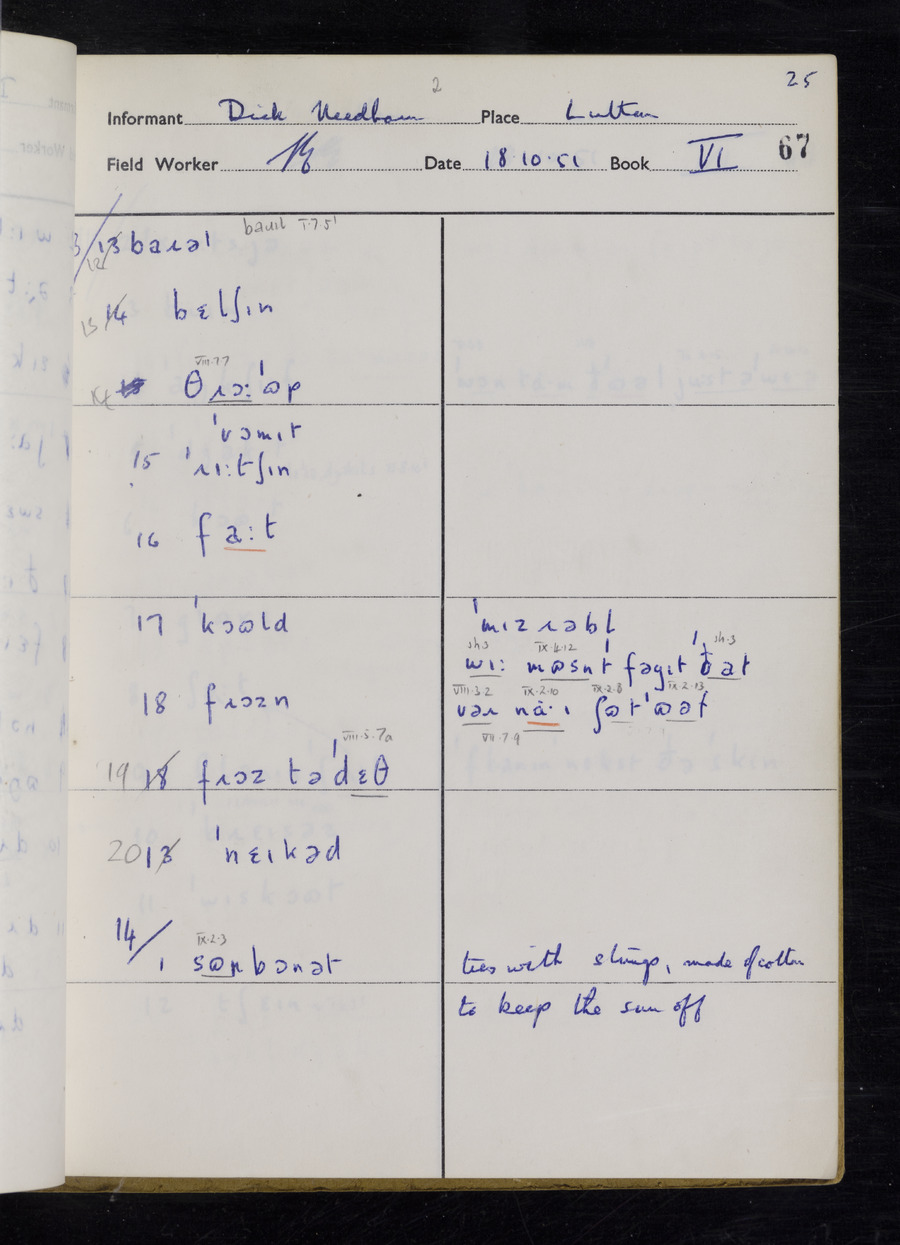 2
25
Informant Dick Needham Place Lutton
Field Worker Date 18.10.51 Book VI 67
13 baɪəl
12
14 bɛlʃɪn
13
VIII.7.7
14 θɹɔːˈʊp
ˈvɔmɪt
15 ˈɹiːtʃɪn
16 faːt
17 ˈkɔʊld ˈmɪzɹəbl
sh.3 IX.4.12 sh.3
wɪː mʊsnt fəgɪt ðat
18 fɹɔzn
VIII.3.2 IX.2.10 IX.2.8 IX.2.13
VII.7.9
VIII.5.7a
19 18 fɹɔz tə ˈdɛθ
20 13 ˈnɛɪkəd
14/
IX.2.3
1 sʊnbɔnət ties with strings, made of cotton
to keep the sun off